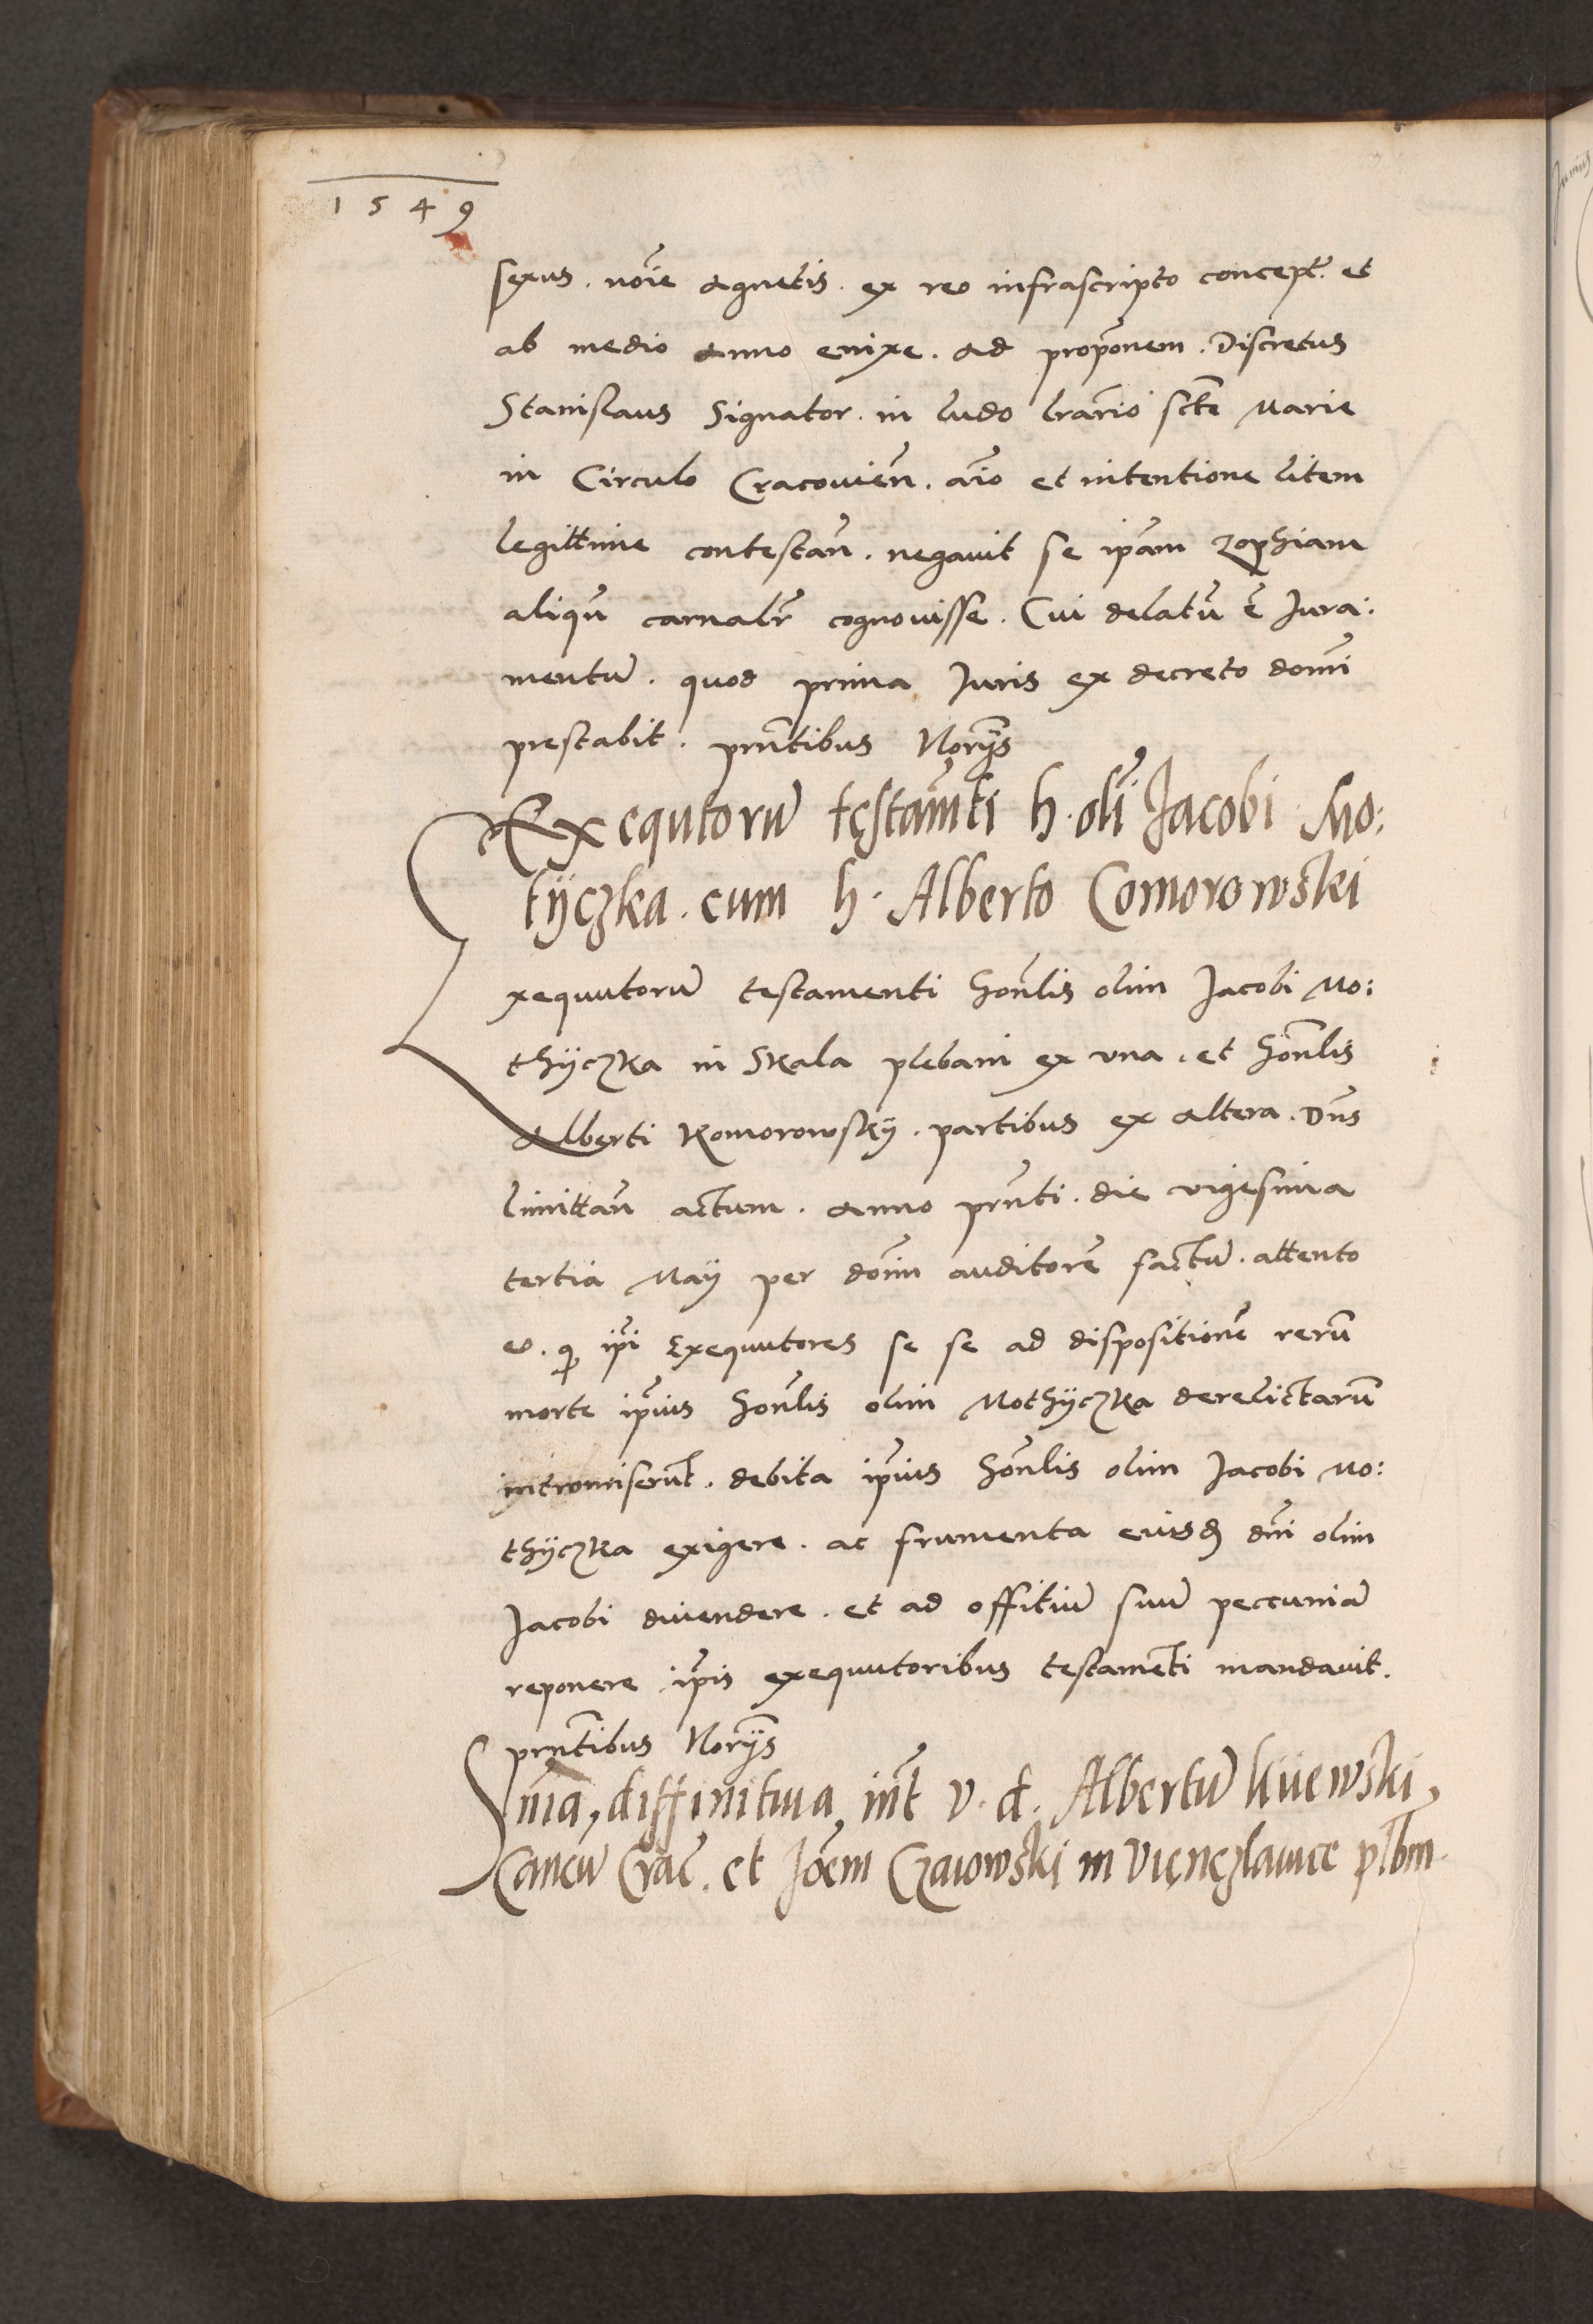 1549
sexus. noīe Agnetis. ex reo infrascripto concept. et
ab medio Anno enixe. ad propōnem. Discretus
Stanislaus Signator. in ludo lrārio sctē Marie
in Circulo Cracovien̄. aīo et intentione litem
legittime contestan̄. negavit se ipām zophiam
aliqn̄ carnalr̄ cognovisse. Cui delatū ē Jura:
mentū. quod prima Juris ex decreto domī
prestabit. prn̄tibus Norȳs
Exequtorū testam̄ti h. olī Jacobi Mo:
tÿczka. cum h. Alberto Comorowski
xequutorū testamenti Hon̄lis olim Jacobi Mo:
thÿczka in Skala plebani ex vna. et Hon̄lis
Alberti Komorowskÿ. partibus ex altera. Dn̄s
limittan̄ actum. Anno prn̄ti. die vigesima
tertia Maÿ per don̄m auditorē factū. attento
eo. q̄ ip̄i Exequutores se se ad dispositionē rerū
morte ip̄ius Hon̄lis olim Mothÿczka derelictarū
intromiserūt. debita ip̄ius Hon̄lis olim Jacobi Mo:
thÿczka exigere. ac frumenta eiusd. dn̄i olim
Jacobi divendere. et ad offitiū suū peccuniā
reponere ip̄is exequutoribus testamēti mandavit.
prn̄tibus Norȳs
Snīa, diffinitiva, int̄ v. d. Albertū Kÿewski,
Cancū Crac̄. et Joēm Czaiowski in Viençzlavice plbm.
Junius